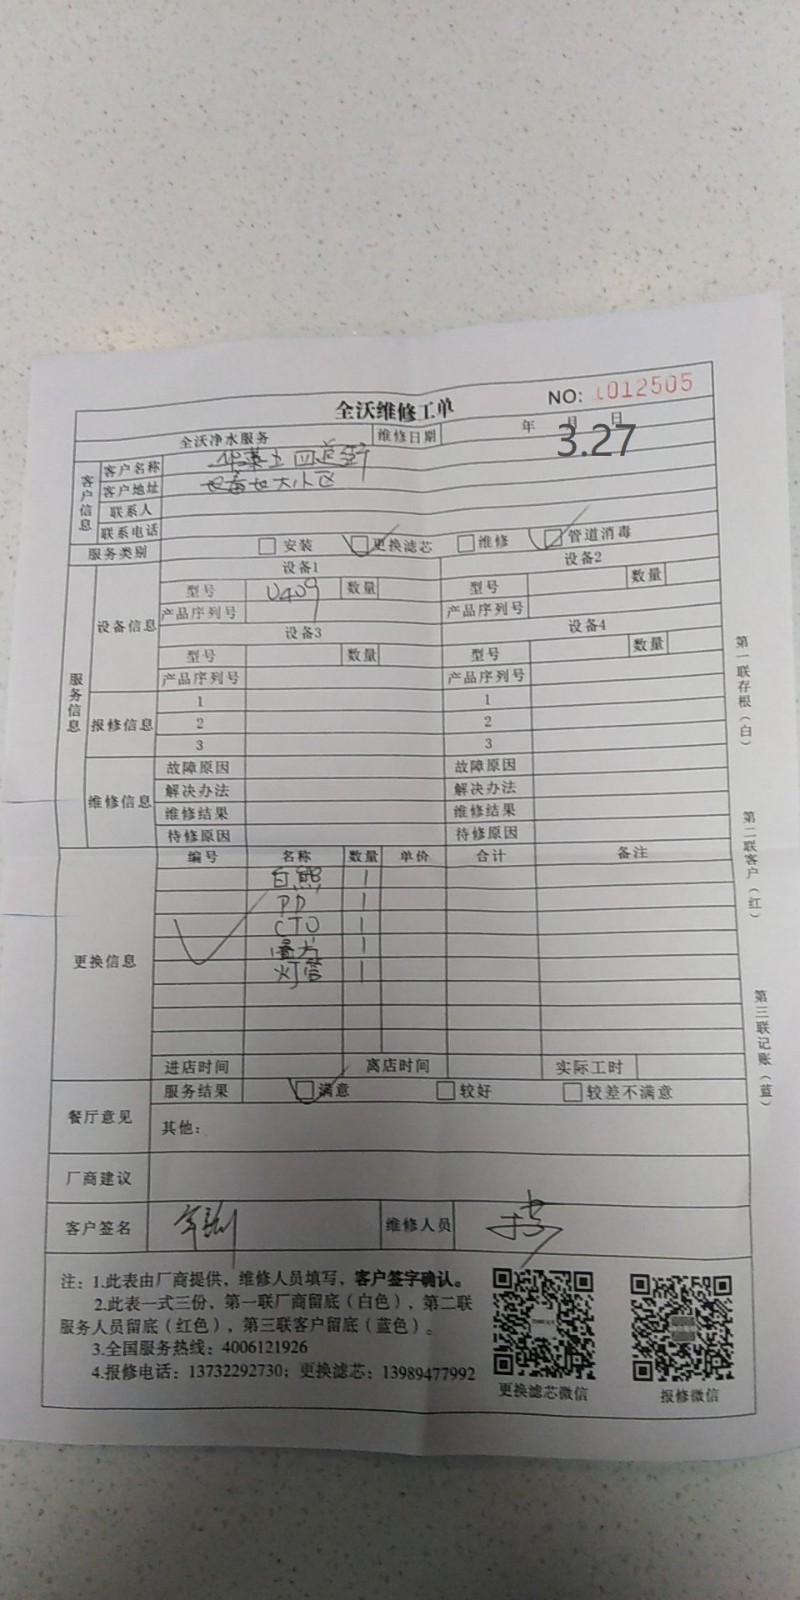 全沃维修工单
NO: 1012505
全沃净水服务 维修日期 年 月 日
3.27
客户信息
客户名称 华莱士
客户地址 大小区
联系人
联系电话
服务类别 安装 更换滤芯 维修 管道消毒
服务信息
设备信息
设备1 设备2
型号 U409 数量 型号 数量
产品序列号 产品序列号
设备3 设备4
型号 数量 型号 数量
产品序列号 产品序列号
报修信息
1 1
2 2
3 3
维修信息
故障原因 故障原因
解决办法 解决办法
维修结果 维修结果
待修原因 待修原因
更换信息
编号 名称 数量 单价 合计 备注
白熊 1
PP 1
CTO 1
1
灯管 1
进店时间 离店时间 实际工时
餐厅意见
服务结果 满意 较好 较差不满意
其他:
厂商建议
客户签名 维修人员
注: 1.此表由厂商提供、维修人员填写、客户签字确认。
2.此表一式三份、第一联厂商留底（白色）、第二联
服务人员留底（红色）、第三联客户留底（蓝色）。
3.全国服务热线：4006121926
4.报修电话：13732292730；更换滤芯：13989477992
更换滤芯微信
报修微信
第一联存根（白）
第二联客户（红）
第三联记账（蓝）